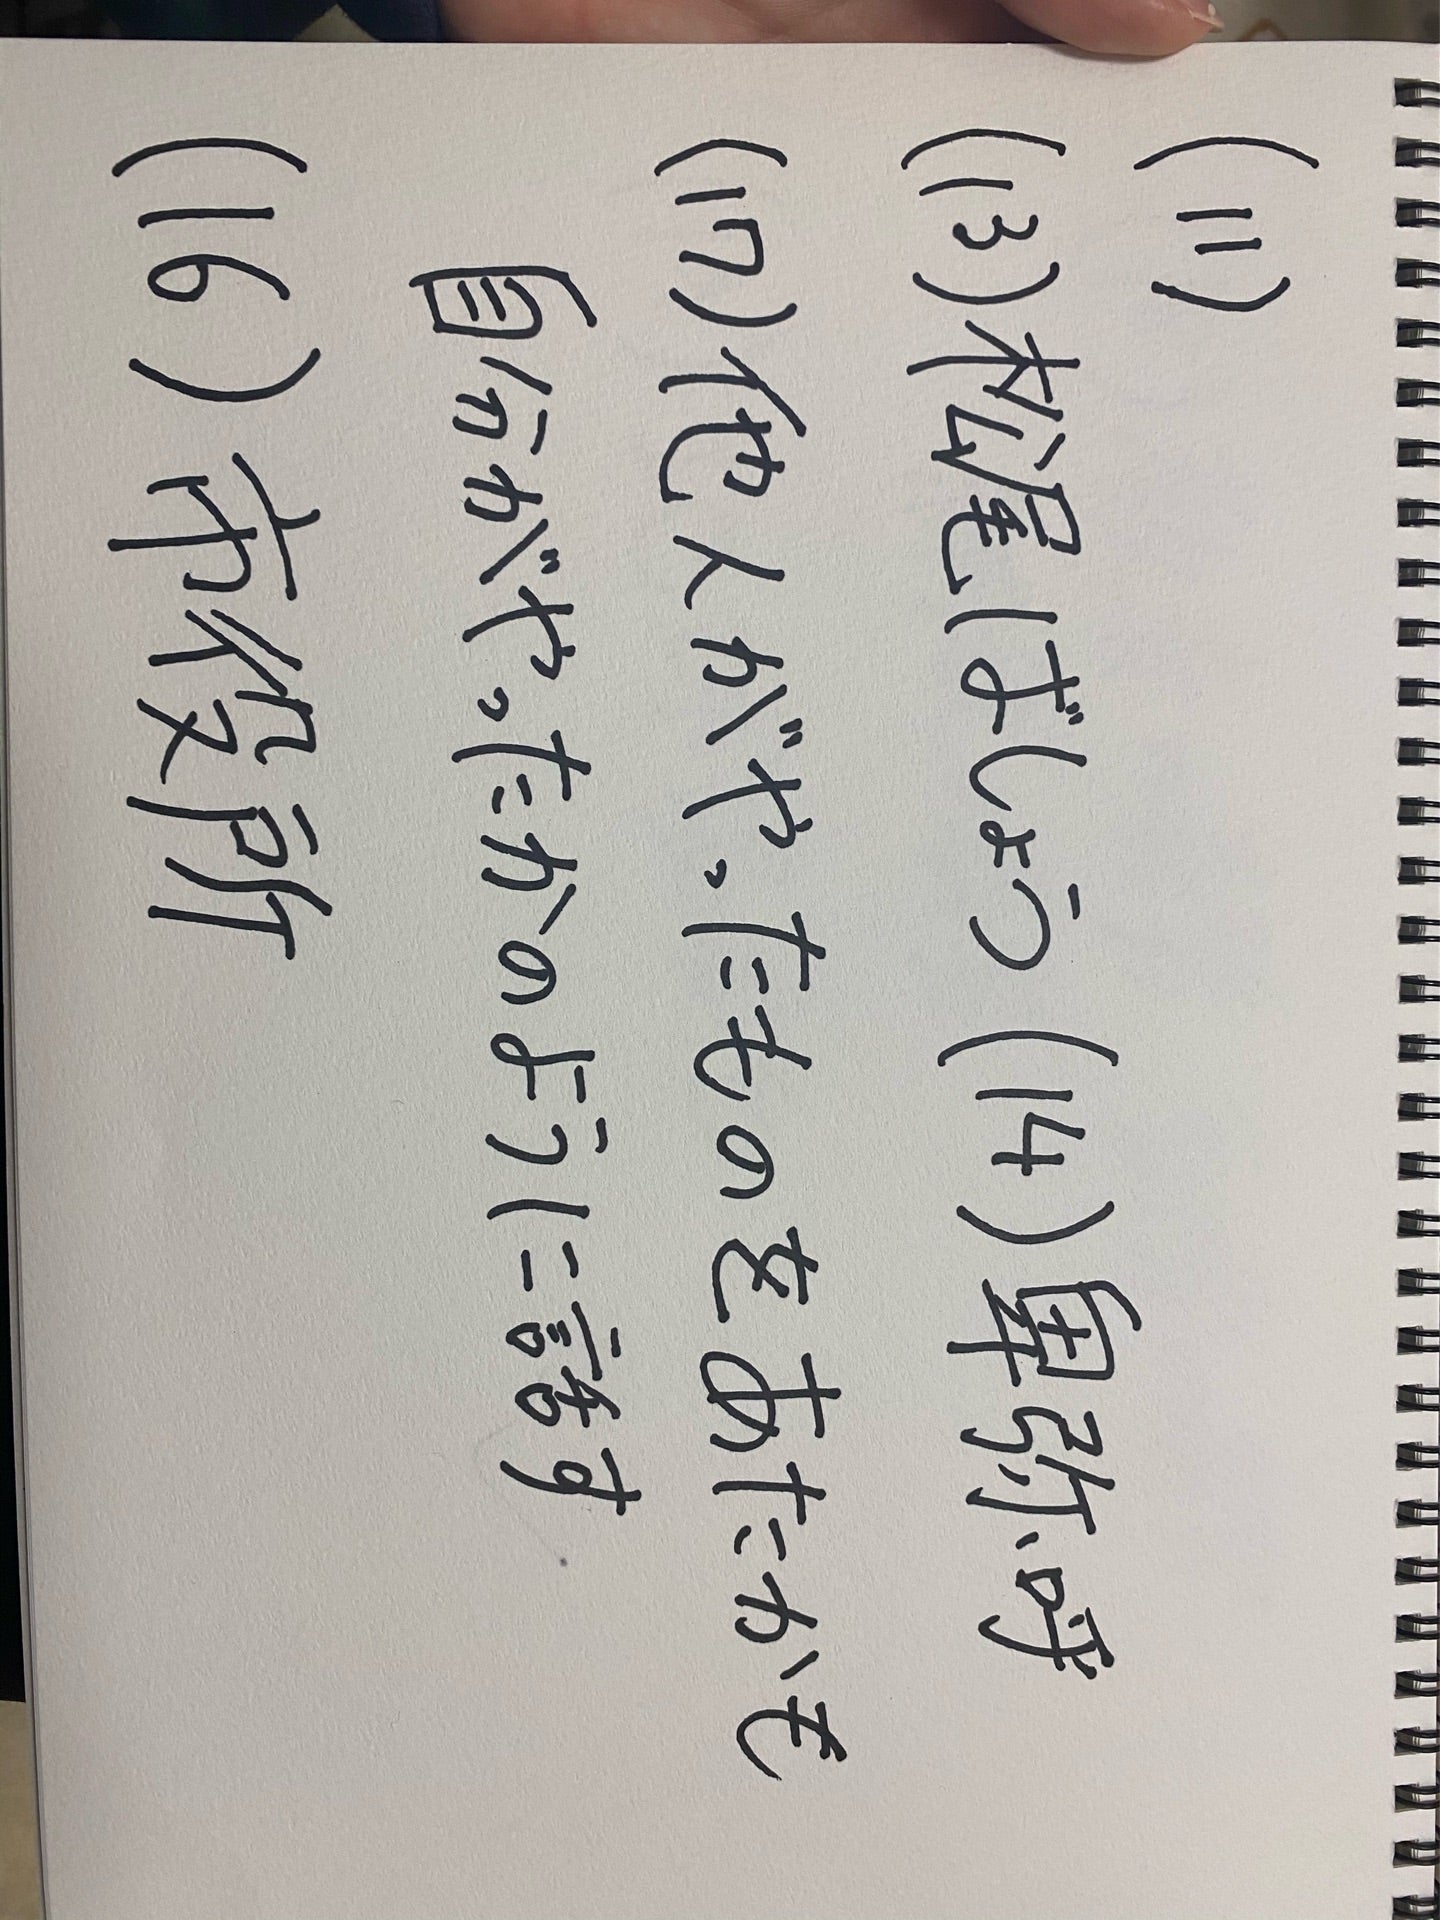 (11)
(13)松尾ばしょう (14)卑弥呼
(17)他人がやったものをあたかも
自分がやったかのように話す
(16)市役所